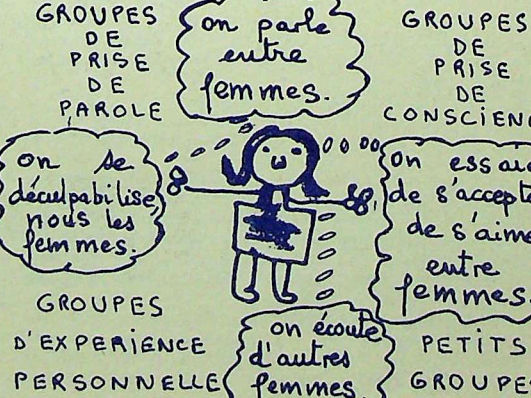 GROUPES
DE
PRISE
DE
PAROLE
on parle
entre
femmes.
GROUPES
DE
PRISE
DE
on se
déculpabilise,
nous les
femmes.
on
de
de
entre
femmes
GROUPES
D'EXPERIENCE
PERSONNELLE
on écoute
d'autres
femmes.
PETITS